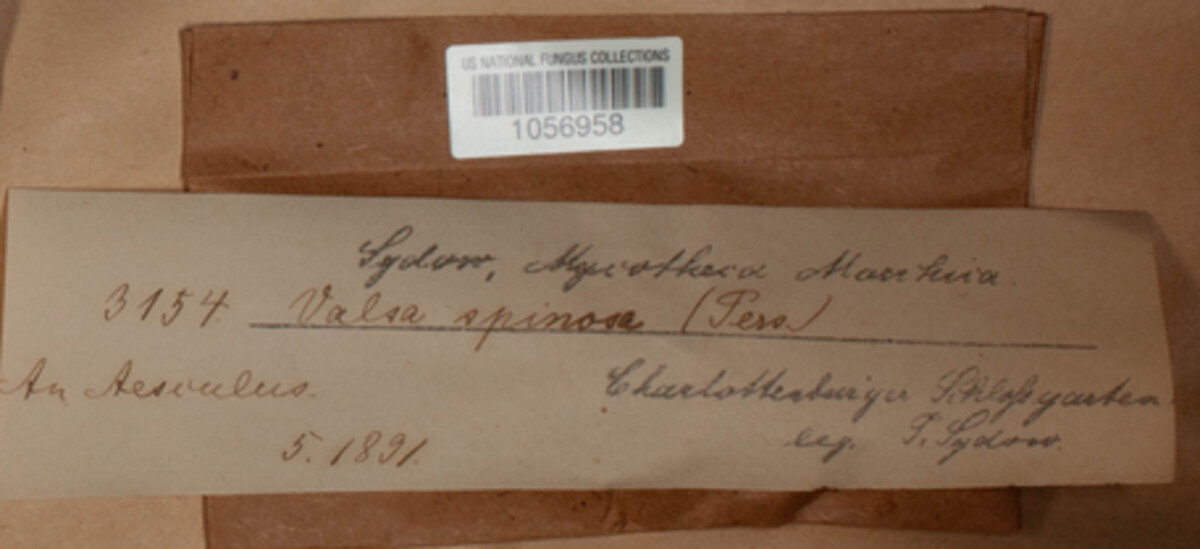 US NATIONAL FUNGUS COLLECTIONS
1056958
Sydow, Mycotheca Marchica.
3154. Valsa spinosa (Pers.)
An Aesculus.
Charlottenburger Schloßgarten.
5. 1891.
leg. P. Sydow.